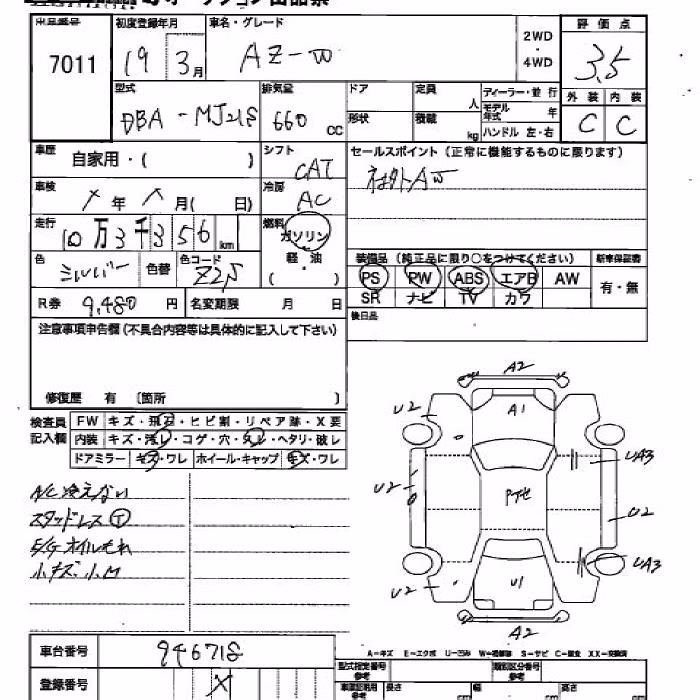 出品番号 初度登録年月 車名・グレード 2WD・4WD 評価点
7011 19 3月 AZ-W 3.5
型式 排気量 ドア 定員 人 ディーラー・並行 外装 内装
DBA-MJ21S 660 CC 形状 積載 kg モデル年式 年 C C
ハンドル 左・右
車歴 自家用・( ) シフト CAT セールスポイント (正常に機能するものに限ります)
車検 年 月( 日) 冷房 AC 社外AW
走行 10万3千356km 燃料 ガソリン
軽・油
( )
装備品 (純正品に限り○をつけてください) 新車保証書
色 シルバー 色替 色コード Z2S PS PW ABS エアB AW 有・無
R券 9,480円 名変期限 月 日 SR ナビ TV カワ
後日品
注意事項申告欄(不具合内容等は具体的に記入して下さい)
修復歴 有 〔箇所 〕
検査員 FW キズ・飛石・ヒビ割・リペア跡・X要
記入欄 内装 キズ・汚レ・コゲ・穴・スレ・ヘタリ・破レ
ドアミラー キズ・ワレ ホイール・キャップ キズ・ワレ
A/C冷えない
スタッドレスT
E/Gオイルもれ
小キズ.小凹
A2
U2 A1
UA3
U2
U2
U2 U1 UA3
A2
車台番号 946718
A-キズ E-エクボ U-凹み W-補修跡 S-サビ C-腐食 XX-交換済
登録番号 X
型式指定番号 参考 類別区分番号 参考
車庫証明用 参考 長さ cm 幅 cm 高さ cm